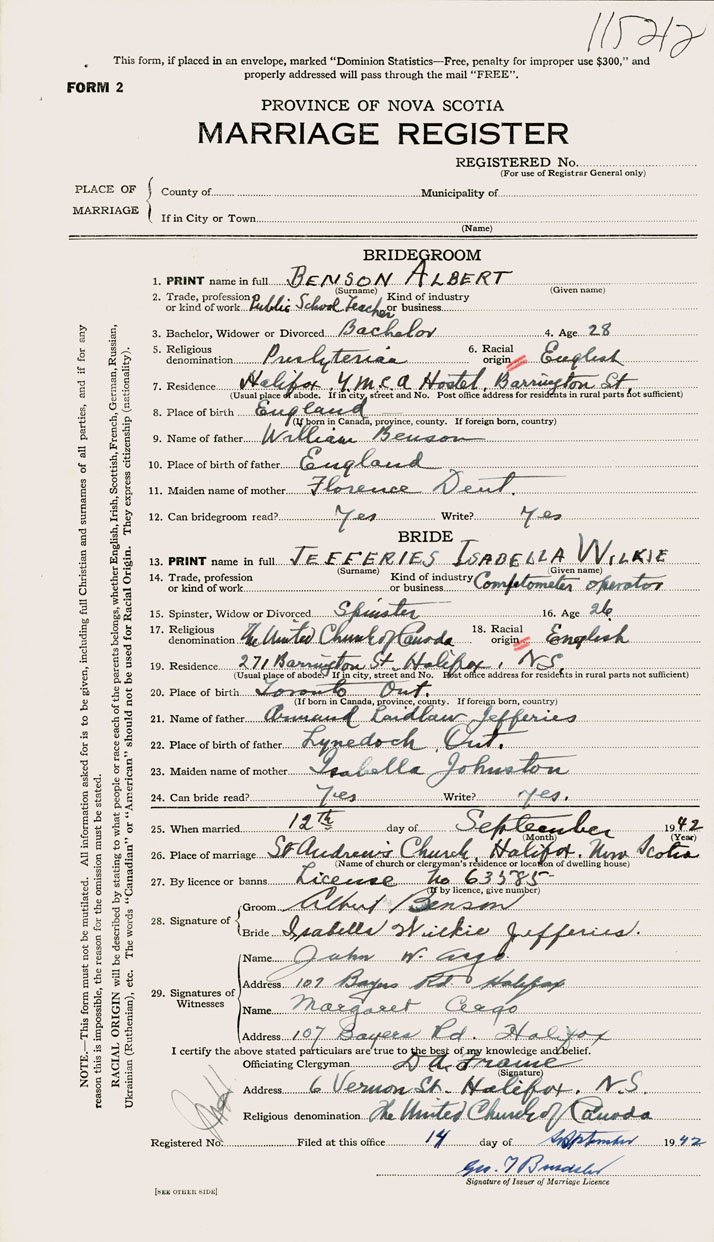 115212
This form, if placed in an envelope, marked "Dominion Statistics—Free, penalty for improper use $300," and
properly addressed will pass through the mail "FREE".
FORM 2
PROVINCE OF NOVA SCOTIA
MARRIAGE REGISTER
REGISTERED No.
(For use of Registrar General only)
PLACE OF MARRIAGE
County of Municipality of
If in City or Town
(Name)
BRIDEGROOM
1. PRINT name in full BENSON ALBERT
(Surname) (Given name)
2. Trade, profession or kind of work Public School Teacher Kind of industry or business
3. Bachelor, Widower or Divorced Bachelor 4. Age 28
5. Religious denomination Presbyterian 6. Racial origin English
7. Residence Halifax Y.M.C.A Hostel, Barrington St.
(Usual place of abode. If in city, street and No. Post office address for residents in rural parts not sufficient)
8. Place of birth England
(If born in Canada, province, county. If foreign born, country)
9. Name of father William Benson
10. Place of birth of father England
11. Maiden name of mother Florence Dent.
12. Can bridegroom read? Yes Write? Yes
BRIDE
13. PRINT name in full JEFFERIES ISABELLA WILKIE
(Surname) (Given name)
14. Trade, profession or kind of work Kind of industry or business Comptometer operator
15. Spinster, Widow or Divorced Spinster 16. Age 26
17. Religious denomination The United Church of Canada 18. Racial origin English
19. Residence 271 Barrington St. Halifax, N.S.
(Usual place of abode. If in city, street and No. Post office address for residents in rural parts not sufficient)
20. Place of birth Toronto Ont.
(If born in Canada, province, county. If foreign born, country)
21. Name of father Armand Laidlaw Jefferies
22. Place of birth of father Lynedoch, Ont.
23. Maiden name of mother Isabella Johnston
24. Can bride read? Yes Write? Yes.
25. When married 12th day of September 1942
(Month) (Year)
26. Place of marriage St Andrew's Church, Halifax. Nova Scotia
(Name of church or clergyman's residence or location of dwelling house)
27. By licence or banns License No 63585
(If by licence, give number)
28. Signature of
Groom Albert Benson
Bride Isabella Wilkie Jefferies.
29. Signatures of Witnesses
Name John W. Argo
Address 107 Bayers Rd Halifax
Name Margaret
Address 107 Bayers Rd. Halifax
I certify the above stated particulars are true to the best of my knowledge and belief.
Officiating Clergyman D A Frame
(Signature)
Address 6 Vernon St. Halifax. N.S.
Religious denomination The United Church of Canada
Registered No. Filed at this office 14 day of September 1942
Geo. T
Signature of Issuer of Marriage Licence
[SEE OTHER SIDE]
NOTE.—This form must not be mutilated. All information asked for is to be given, including full Christian and surnames of all parties, and if for any
reason this is impossible, the reason for the omission must be stated.
RACIAL ORIGIN will be described by stating to what people or race each of the parents belongs, whether English, Irish, Scottish, French, German, Russian,
Ukrainian (Ruthenian), etc. The words "Canadian" or "American" should not be used for Racial Origin. They express citizenship (nationality).